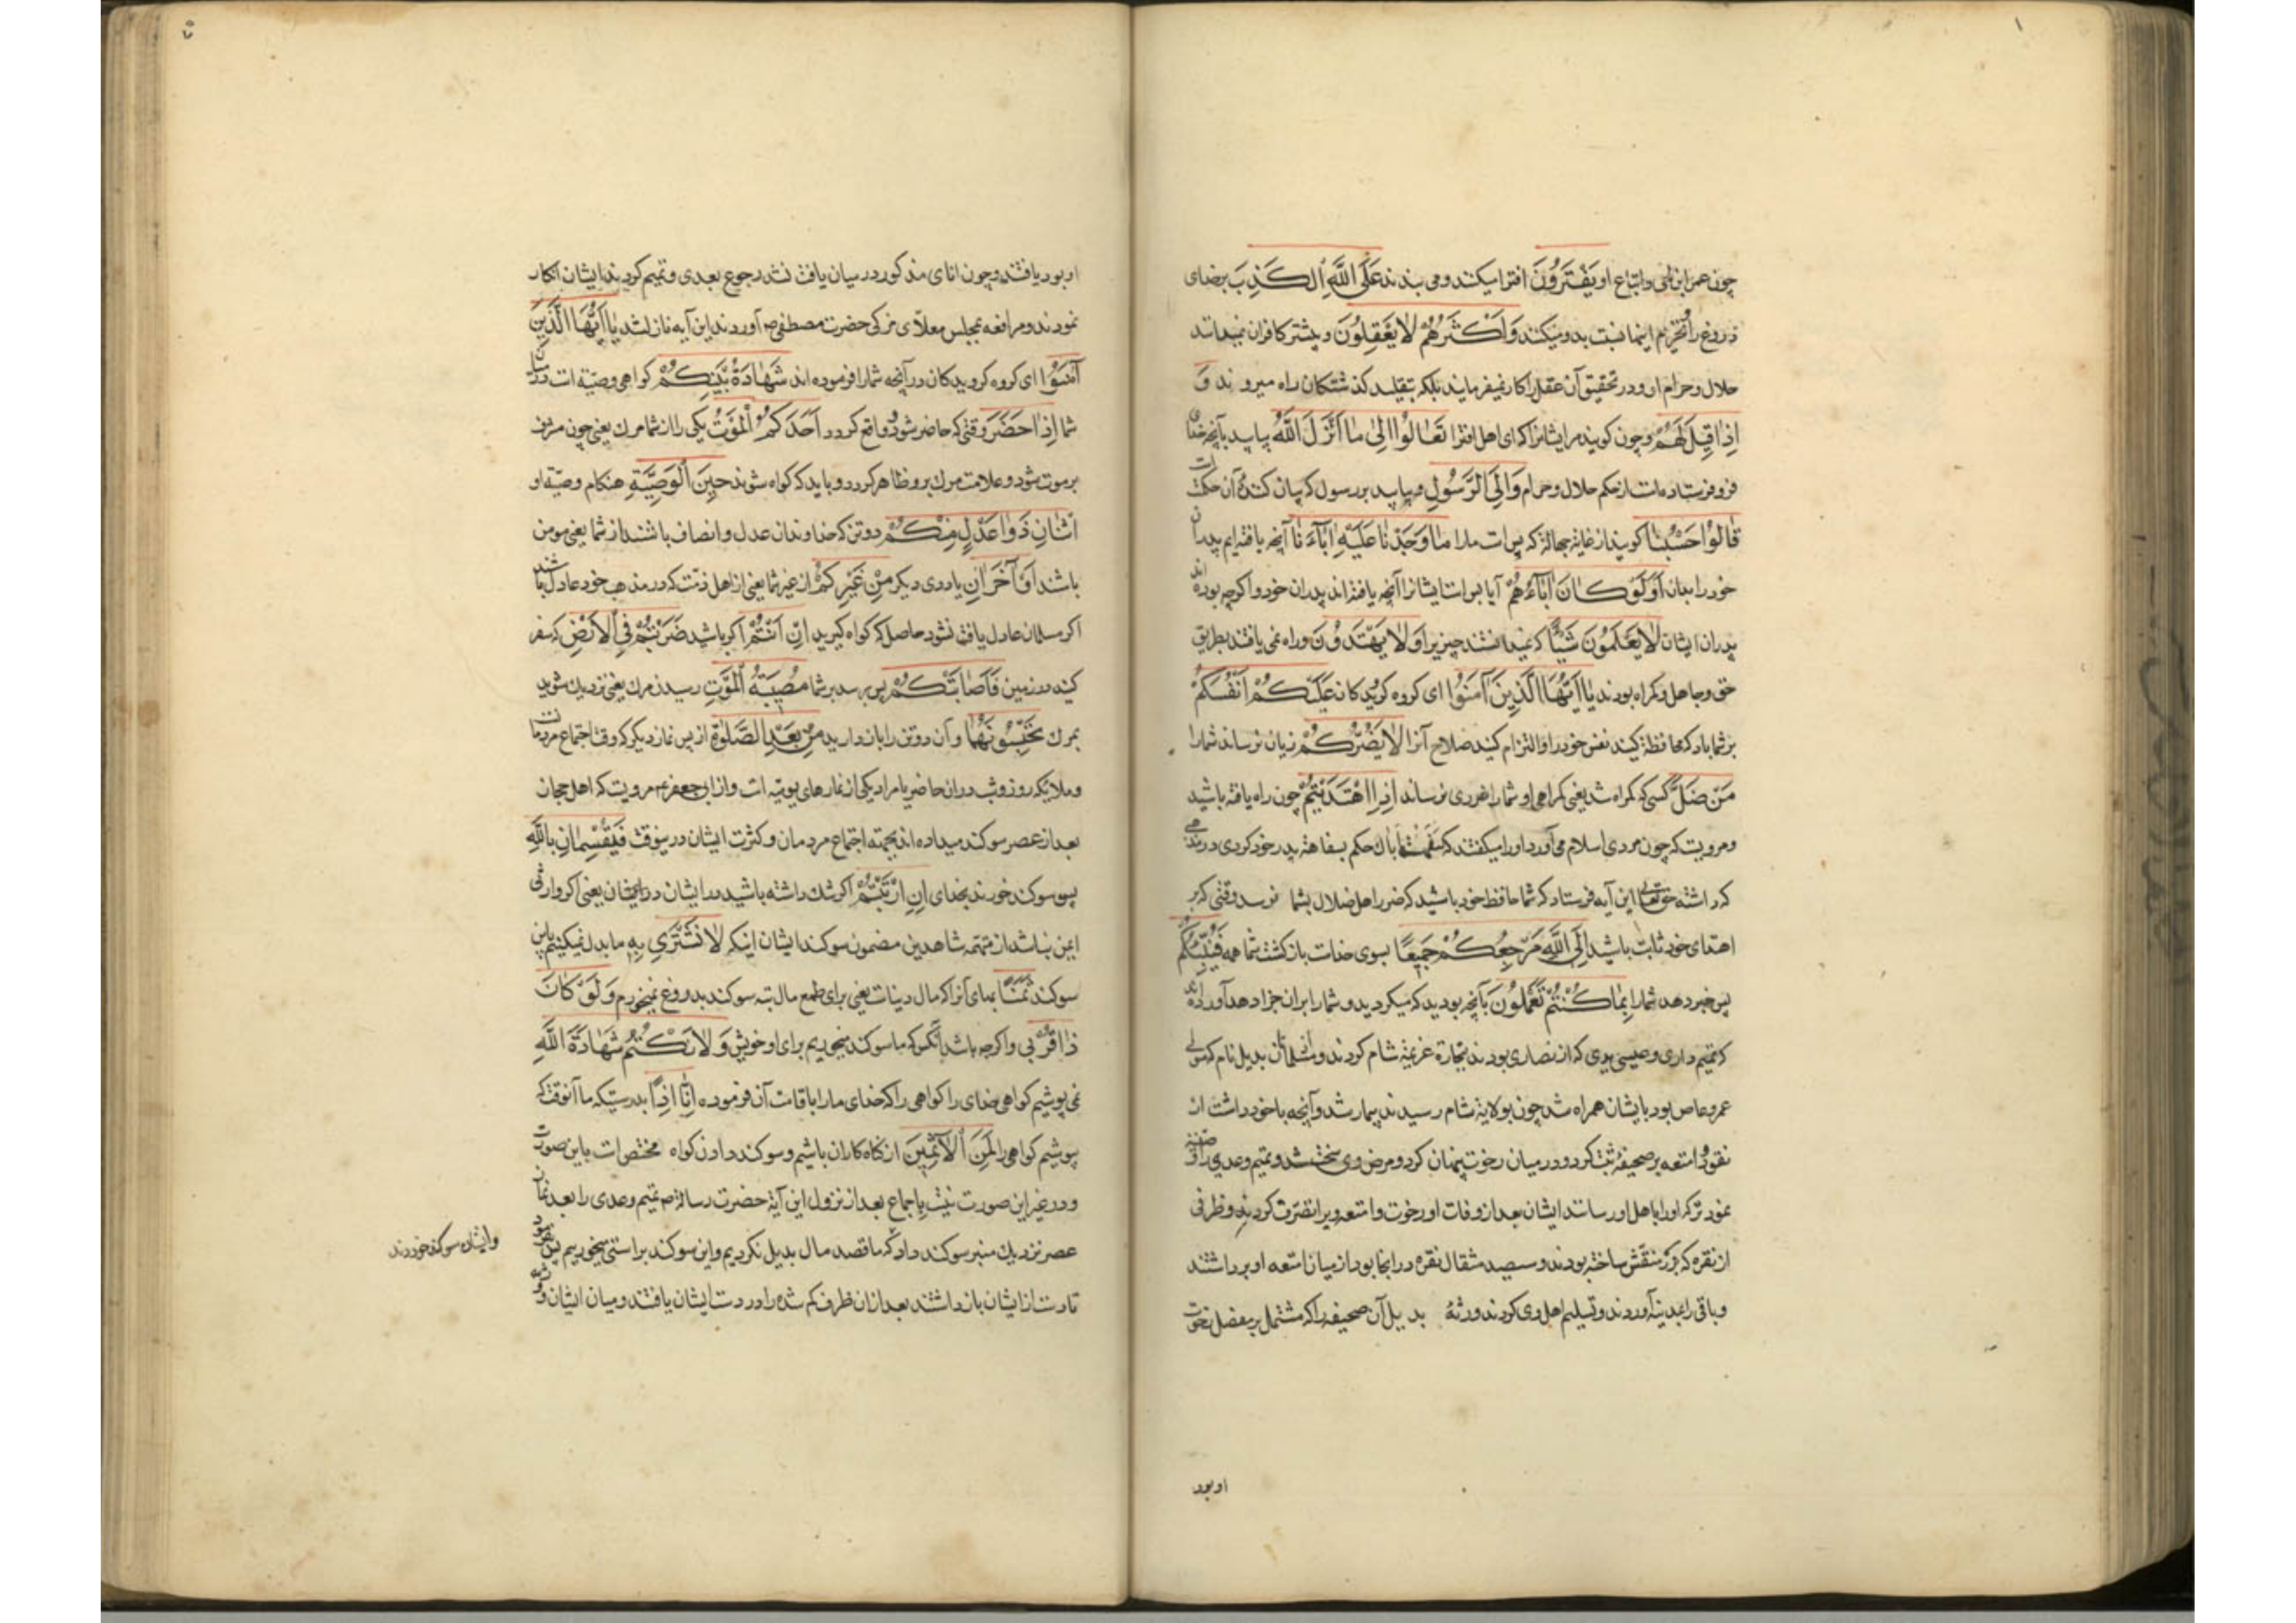 چون عمر ابن لحی و اتباع او یَفْتَرُونَ افترا میکنند و می بندند عَلَی اللَّهِ الْکَذِبَ بر خدای
دروغ را تحریم اینها نسبت بدو میکنند وَاَکْثَرُهُمْ لَا یَعْقِلُونَ و بیشتر کافران نمیدانند
حلال و حرام او و در تحقیق آن عقل را کار نمیفرمایند بلکه بتقلید کذشتکان راه میروند وَ
اِذَا قِیلَ لَهُمْ و چون کویند مر ایشانرا که ای اهل افترا تَعَالَوْا اِلیٰ مَا اَنْزَلَ اللَّهُ بیایید بآنچه خدا
فرو فرستاده است از حکم حلال و حرام وَاِلَی الرَّسُولِ و بیایید بر رسول که بیان کنندهٔ آن حکمست
قَالُوا حَسْبُنَا کویند از غایة جهالة که بس است مارا مَا وَجَدْنَا عَلَیْهِ اٰبَآءَنَا آنچه یافته ایم پدران
خود را بدان اَوَلَوْ کَانَ اٰبَآءُهُمْ آیا بس است ایشانرا آنچه یافته اند پدران خود و اکرچه بوده اند
پدران ایشان لَا یَعْلَمُونَ شَیْئًا که نمیدانستند چیزیرا وَلَا یَهْتَدُونَ و راه نمی یافتند بطریق
حق و جاهل و کمراه بودند یَا اَیُّهَا الَّذِینَ اٰمَنُوا ای کروه کرویدکان عَلَیْکُمْ اَنْفُسَکُمْ
بر شما باد که محافظة کنید نفس خود را و التزام کنید صلاح آنرا لَا یَضُرُّکُمْ زیان نرساند شمارا
مَنْ ضَلَّ کسی که کمراه شد یعنی کمراهی او شمارا ضرری نرساند اِذَا اهْتَدَیْتُمْ چون راه یافته باشید
و مرویست که چون مردی اسلام می آورد او را میکفتند که سفهت اباک حکم بسفاهة پدر خود کردی در
که داشته حق تعالی این آیه فرستاد که شما حافظ خود باشید که ضرر اهل ضلال بشما نرسد وقتی که بر
اهتدای خود ثابت باشید اِلَی اللَّهِ مَرْجِعُکُمْ جَمِیعًا بسوی خداست بازکشت شما همه فَیُنَبِّئُکُمْ
پس خبر دهد شمارا بِمَا کُنْتُمْ تَعْمَلُونَ بآنچه بودید که میکردید و شمارا بران جزا دهد آورده اند
که تمیم داری و عیسی بدی که از نصاری بودند بتجارة عزیمة شام کردند و مسلمانی بدیل نام که مولی
عمرو عاص بود بایشان همراه شد چون بولایة شام رسیدند بیمار شد و آنچه با خود داشت از
نقود و امتعه بر صحیفهٔ ثبت کرد و در میان رخوت پنهان کرد و مرض وی سخت شد و تمیم و عدی را وصیة
نمود ترکه او را باهل او رسانند ایشان بعد از وفات او رخوت و امتعه ویرا تصرّف کردند و ظرفی
از نقره که بزر منقّش ساخته بودند و سیصد مثقال نقره در انجا بود از میان امتعه او برداشتند
و باقی را بمدینه آوردند و تسلیم اهل وی کردند ورثهٔ بدیل آن صحیفه را که مشتمل بر مفصل رخوت
او بود
او بود یافتند و چون انای مذکور در میان یافت نشد رجوع بعدی و تمیم کردند ایشان انکار
نمودند و مرافعه بمجلس معلّای مزکی حضرت مصطفی ص آوردند این آیه نازل شد یَا اَیُّهَا الَّذِینَ
اٰمَنُوا ای کروه کرویدکان در آنچه شمارا فرموده اند شَهَادَةُ بَیْنِکُمْ کواهی وصیّة است در میان
شما اِذَا حَضَرَ وقتی که حاضر شود و واقع کردد اَحَدَکُمُ الْمَوْتُ یکی را از شما مرک یعنی چون مشرف
بر موت شود و علامت مرک برو ظاهر کردد و باید که کواه شوند حِینَ الْوَصِیَّةِ هنکام وصیّة او
اثْنَانِ ذَوَا عَدْلٍ مِنْکُمْ دو تن که خداوندان عدل و انصاف باشند از شما یعنی مومن
باشند اَوْ اٰخَرَانِ یا دوی دیکر مِنْ غَیْرِکُمْ از غیر شما یعنی از اهل ذمّت که در مذهب خود عادل باشند
اکر مسلمان عادل یافت نشود حاصل که کواه کیرید اِنْ اَنْتُمْ اکر باشید ضَرَبْتُمْ فِی الْاَرْضِ که سفر
کنید در زمین فَاَصَابَتْکُمْ پس برسد بر شما مُصِیبَةُ الْمَوْتِ رسیدن مرک یعنی نزدیک شوید
بمرک تَحْبِسُونَهُمَا و آن دو تن را باز دارید مِنْ بَعْدِ الصَّلٰوةِ از پس نماز دیکر که وقت اجتماع مردمانست
و ملائکه روز و شب دران حاضر یا مراد یکی از نمازهای یومیّه است و از ابی جعفر ع مرویست که اهل حجاز
بعد از عصر سوکند میداده اند بجهة اجتماع مردمان و کثرت ایشان درینوقت فَیُقْسِمَانِ بِاللَّهِ
پس سوکند خورند بخدای اِنِ ارْتَبْتُمْ اکر شک داشته باشید در ایشان یعنی اکر وارثی
ایمن نباشد از تهمة شاهدین مضمون سوکند ایشان اینکه لَا نَشْتَرِی بِهِ ما بدل نمیکنیم باین
سوکند ثَمَنًا بهای آنرا که مال دنیاست یعنی برای طمع مال تبه سوکند بدروغ نمیخوریم وَلَوْ کَانَ
ذَا قُرْبٰی و اکرچه باشد آنکس که ما سوکند میخوریم برای او خویش وَلَا نَکْتُمُ شَهَادَةَ اللَّهِ
نمی پوشیم کواهی خدای را کواهی را که خدای مارا باقامت آن فرموده اِنَّا اِذًا بدرستیکه ما آنوقت که
بپوشیم کواهی را لَمِنَ الْاٰثِمِینَ از کناه کاران باشیم و سوکند دادن کواه مختص است باین صورت
و در غیر این صورت نیست باجماع بعد از نزول این آیة حضرت رسالة ص تمیم و عدی را بعد از نماز
عصر نزدیک منبر سوکند داد که ما قصد مال بدیل نکردیم و این سوکند براستی میخوریم پس بفرمود
و ایشان سوکند خوردند
تا دست از ایشان باز داشتند بعد از ان ظرف کم شده را در دست ایشان یافتند و میان ایشان و ورثه